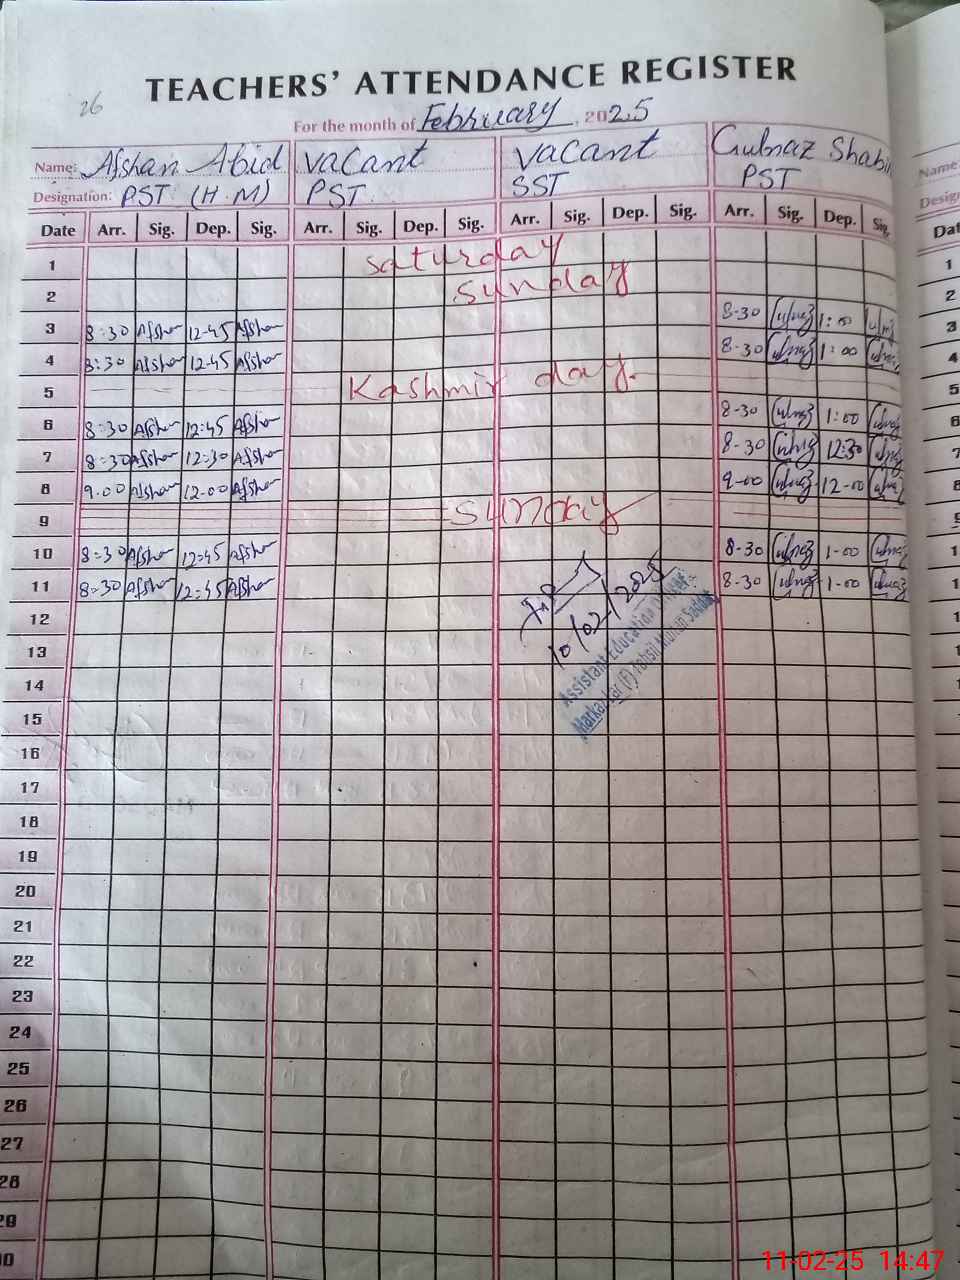 TEACHERS' ATTENDANCE REGISTER
26
For the month of February, 2025
Name: Afshan Abid vacant vacant Gulnaz Shabir
Designation: PST (H.M) PST SST PST
Date Arr. Sig. Dep. Sig. Arr. Sig. Dep. Sig. Arr. Sig. Dep. Sig. Arr. Sig. Dep. Sig.
1 Saturday
2 Sunday
3 8:30 Afshan 12-45 Afshan 8-30 Gulnaz 1:00 Gulnaz
4 8:30 Afshan 12-45 Afshan 8-30 Gulnaz 1:00 Gulnaz
5 Kashmir day.
6 8:30 Afshan 12:45 Afshan 8-30 Gulnaz 1:00 Gulnaz
7 8:30 Afshan 12:30 Afshan 8-30 Gulnaz 12:30 Gulnaz
8 9.00 Afshan 12-00 Afshan 9-00 Gulnaz 12-00 Gulnaz
9 Sunday
10 8:30 Afshan 12:45 Afshan 8-30 Gulnaz 1-00 Gulnaz
11 8:30 Afshan 12:45 Afshan 8-30 Gulnaz 1-00 Gulnaz
10/02/2025
Assistant Education Officer
12
13
14
15
16
17
18
19
20
21
22
23
24
25
26
27
28
29
Name
Dat
1
2
3
4
5
6
7
8
11-02-25 14:47